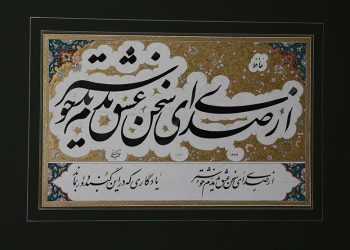 حافظ
از صدای سخن عشق ندیدم خوشتر
از صدای سخن عشق ندیدم خوشتر یادگاری که در این گنبد دوار بماند